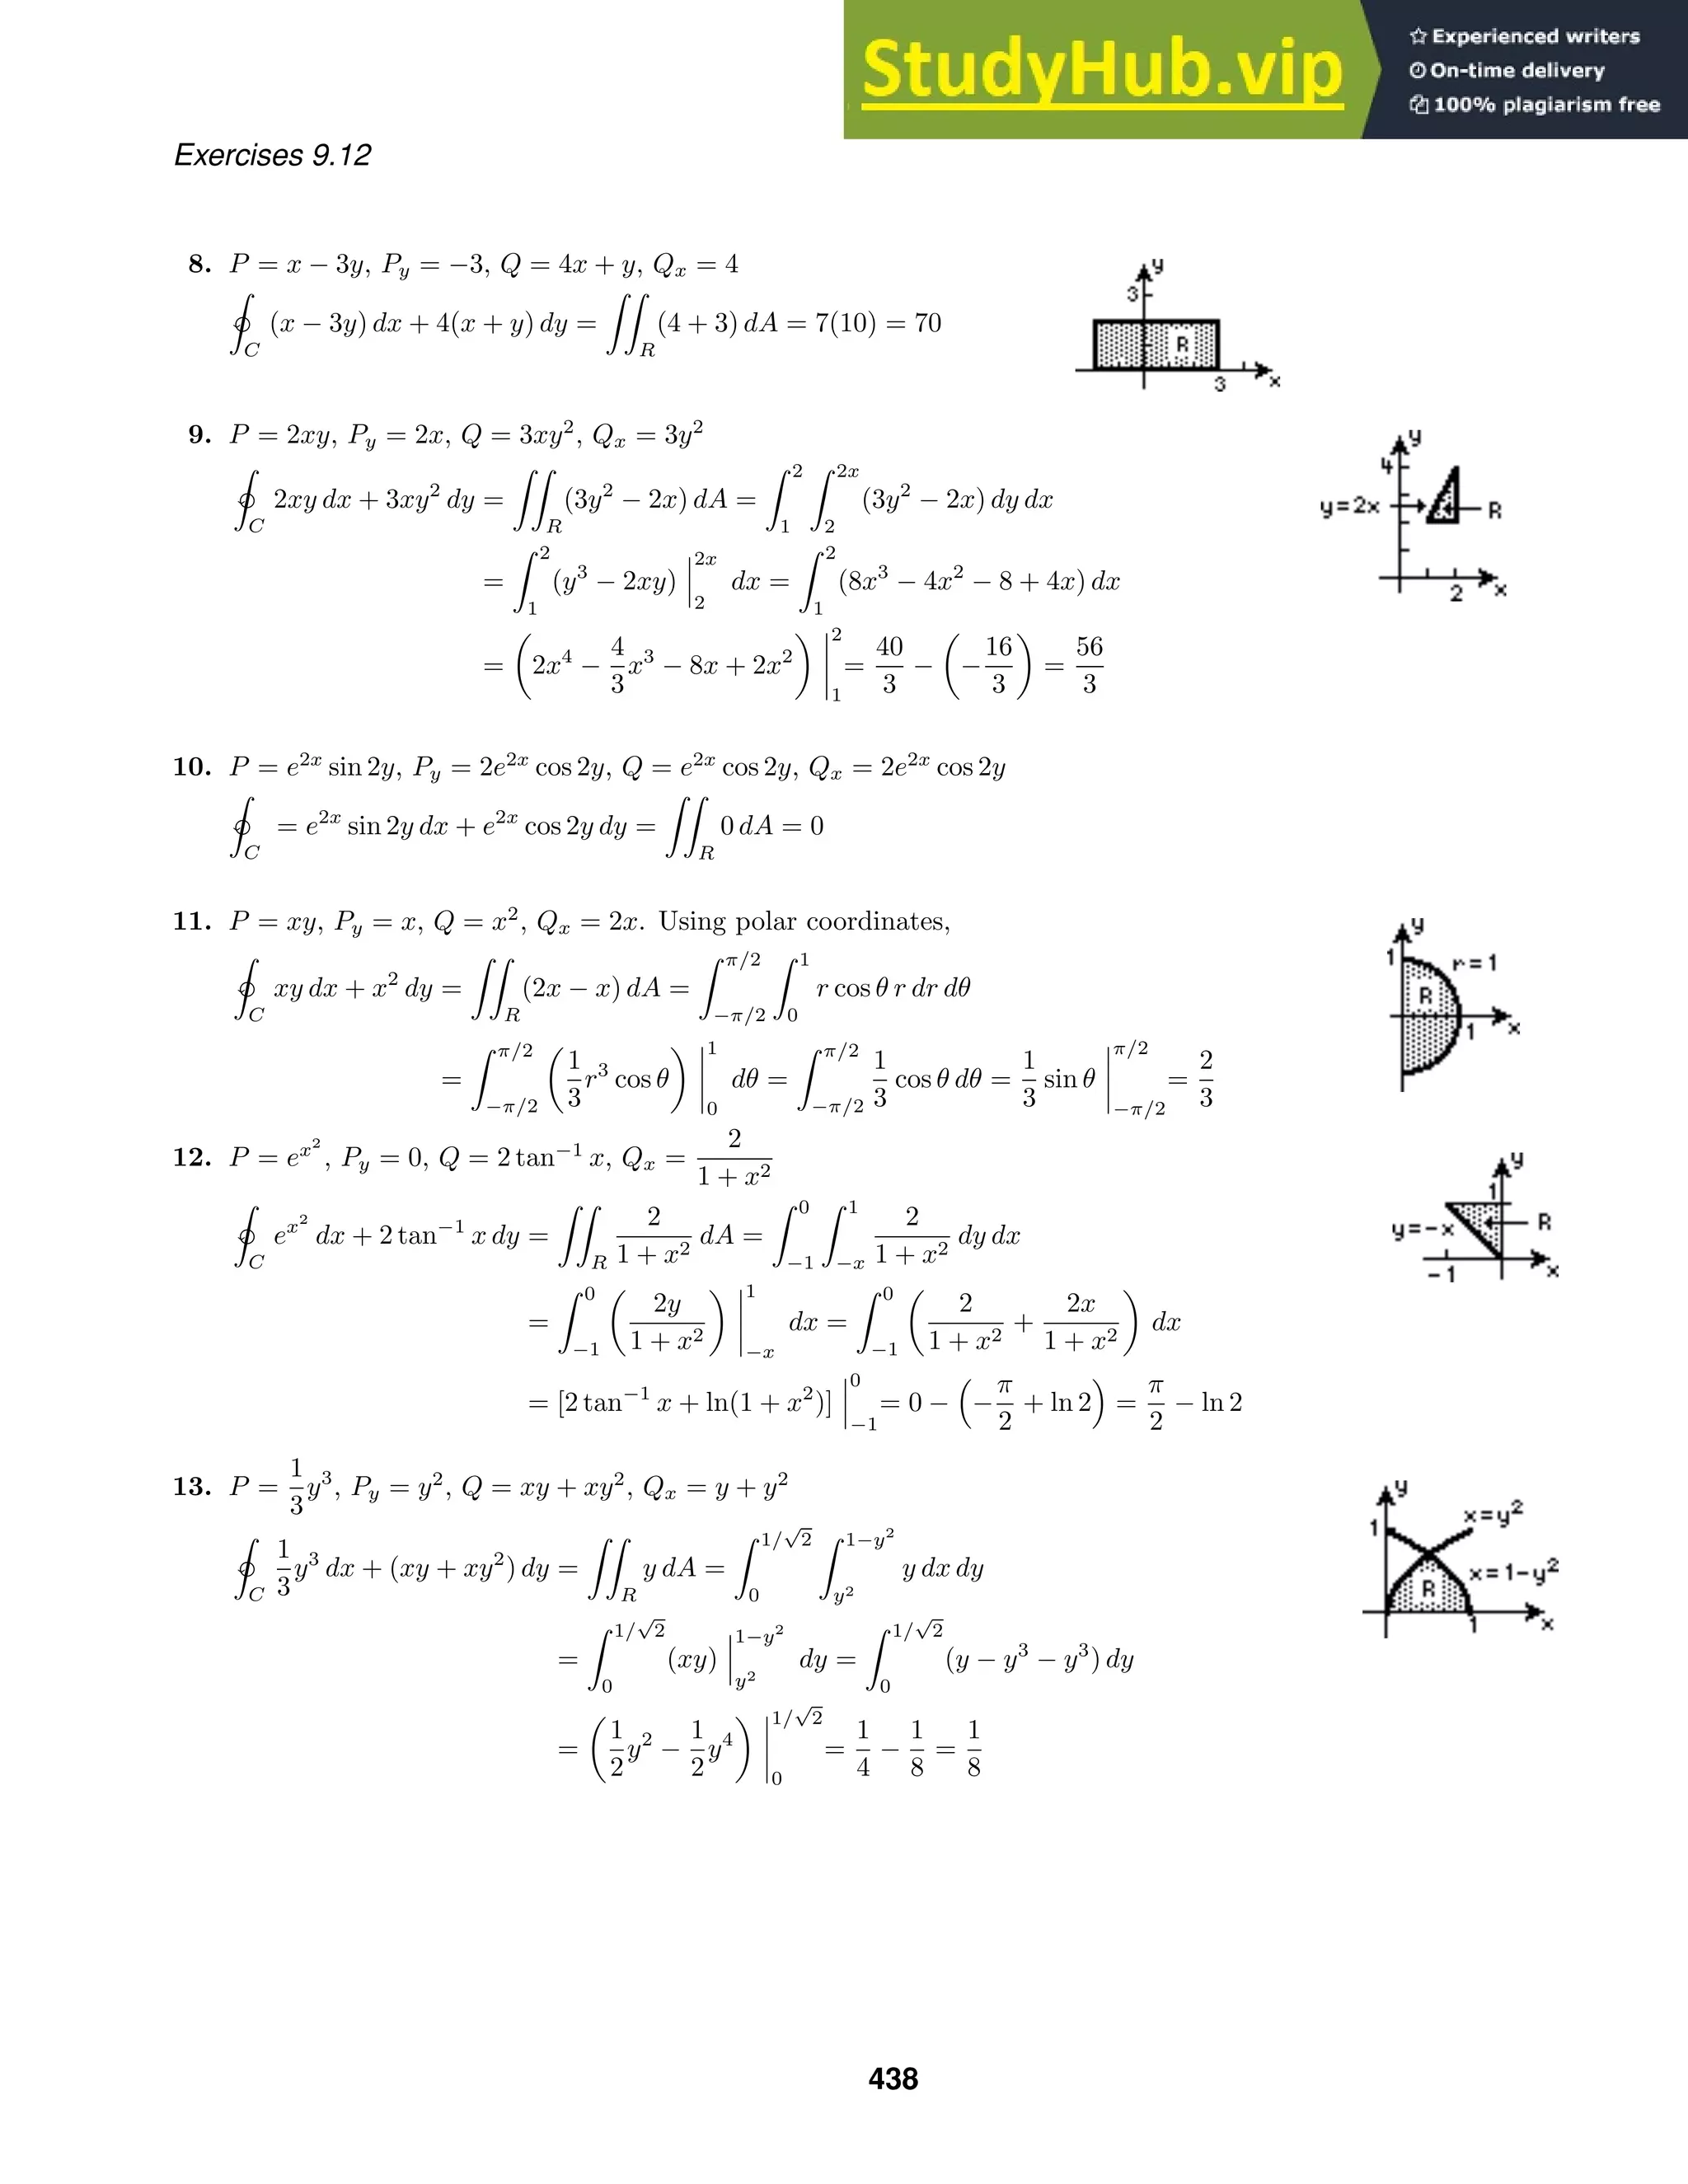 StudyHub.vip
☆ Experienced writers
On-time delivery
100% plagiarism free
Exercises 9.12
8. P = x − 3y, P_y = −3, Q = 4x + y, Q_x = 4
∮_C (x − 3y) dx + 4(x + y) dy = ∬_R (4 + 3) dA = 7(10) = 70
y
3
R
3
x
9. P = 2xy, P_y = 2x, Q = 3xy², Q_x = 3y²
∮_C 2xy dx + 3xy² dy = ∬_R (3y² − 2x) dA = ∫_1^2 ∫_2^{2x} (3y² − 2x) dy dx
= ∫_1^2 (y³ − 2xy) |_2^{2x} dx = ∫_1^2 (8x³ − 4x² − 8 + 4x) dx
= (2x⁴ − 4/3 x³ − 8x + 2x²) |_1^2 = 40/3 − (−16/3) = 56/3
y
4
y=2x
R
2
x
10. P = e^{2x} sin 2y, P_y = 2e^{2x} cos 2y, Q = e^{2x} cos 2y, Q_x = 2e^{2x} cos 2y
∮_C = e^{2x} sin 2y dx + e^{2x} cos 2y dy = ∬_R 0 dA = 0
11. P = xy, P_y = x, Q = x², Q_x = 2x. Using polar coordinates,
∮_C xy dx + x² dy = ∬_R (2x − x) dA = ∫_{−π/2}^{π/2} ∫_0^1 r cos θ r dr dθ
= ∫_{−π/2}^{π/2} (1/3 r³ cos θ) |_0^1 dθ = ∫_{−π/2}^{π/2} 1/3 cos θ dθ = 1/3 sin θ |_{−π/2}^{π/2} = 2/3
y
1
r=1
R
1
x
12. P = e^{x²}, P_y = 0, Q = 2 tan⁻¹ x, Q_x = 2/(1 + x²)
∮_C e^{x²} dx + 2 tan⁻¹ x dy = ∬_R 2/(1 + x²) dA = ∫_{−1}^0 ∫_{−x}^1 2/(1 + x²) dy dx
= ∫_{−1}^0 (2y/(1 + x²)) |_{−x}^1 dx = ∫_{−1}^0 (2/(1 + x²) + 2x/(1 + x²)) dx
= [2 tan⁻¹ x + ln(1 + x²)] |_{−1}^0 = 0 − (−π/2 + ln 2) = π/2 − ln 2
y
1
y=−x
R
−1
x
13. P = 1/3 y³, P_y = y², Q = xy + xy², Q_x = y + y²
∮_C 1/3 y³ dx + (xy + xy²) dy = ∬_R y dA = ∫_0^{1/√2} ∫_{y²}^{1−y²} y dx dy
= ∫_0^{1/√2} (xy) |_{y²}^{1−y²} dy = ∫_0^{1/√2} (y − y³ − y³) dy
= (1/2 y² − 1/2 y⁴) |_0^{1/√2} = 1/4 − 1/8 = 1/8
y
x=y²
1
x=1−y²
R
1
x
438